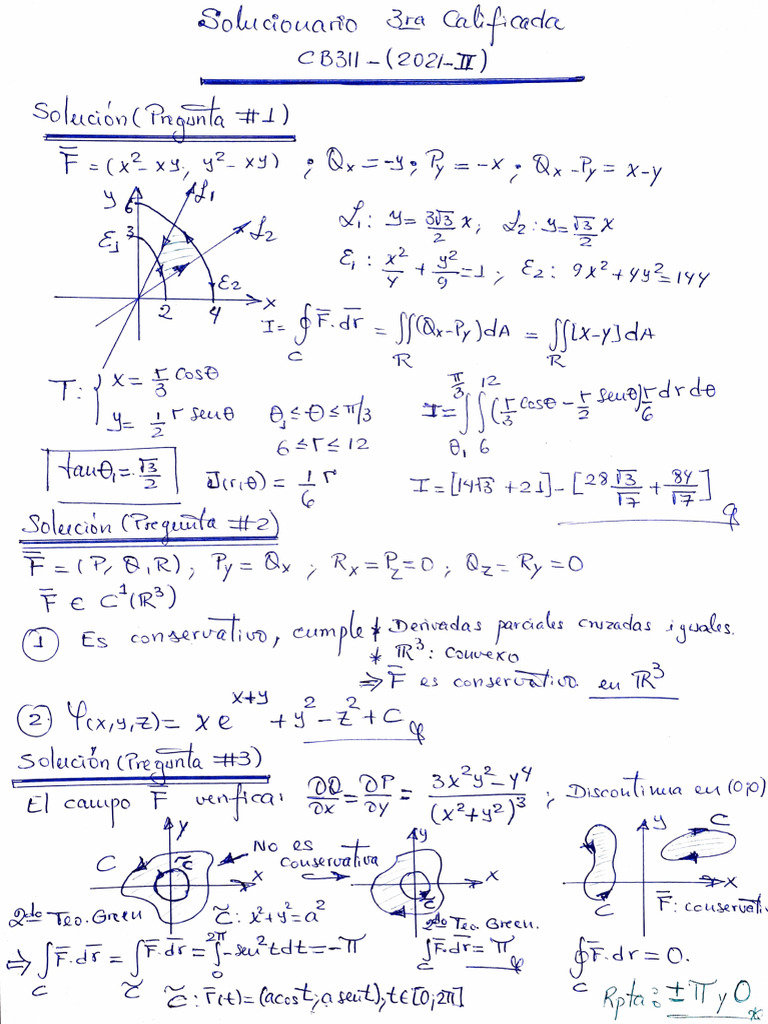 Solucionario 3ra Calificada
CB311-(2021-II)
Solución (Pregunta #1)
F̄ = (x²-xy, y²-xy) ; Qx = -y; Py = -x; Qx-Py = x-y
y 6 L1
L2
E1 3
E2
2 4 x
L1: y = 3√3/2 x; L2: y = √3/2 x
E1: x²/4 + y²/9 = 1; E2: 9x²+4y²=144
I = ∮_C F̄·dr̄ = ∬_R (Qx-Py)dA = ∬_R [x-y]dA
T: { x = r/3 cosθ
y = 1/2 r senθ θ1 ≤ θ ≤ π/3
6 ≤ r ≤ 12
I = ∫_θ1^π/3 ∫_6^12 (r/3 cosθ - r/2 senθ) r/6 dr dθ
tanθ1 = √3/2 J(r,θ) = 1/6 r
I = [14√3 + 21] - [28√3/√7 + 84/√7]
Solución (Pregunta #2)
F̄ = (P, Q, R); Py = Qx ; Rx = Pz = 0 ; Qz = Ry = 0
F̄ ∈ C¹(R³)
① Es conservativo, cumple * Derivadas parciales cruzadas iguales.
* R³: convexo
⇒ F̄ es conservativo en R³
② φ(x,y,z) = x e^(x+y) + y² - z² + C
Solución (Pregunta #3)
El campo F̄ verifica: ∂Q/∂x = ∂P/∂y = (3x²y²-y⁴)/(x²+y²)³ ; Discontinua en (0;0)
y C C̃ x
No es conservativa
y x
y C x C
F̄: conservati
2do Teo. Green C̃: x²+y²=a²
⇒ ∫_C F̄·dr̄ = ∫_C̃ F̄·dr̄ = ∫_0^2π -sen²t dt = -π
C̃: r̄(t) = (a cost, a sent), t∈[0;2π]
2do Teo. Green.
∫_C F̄·dr̄ = π
∮_C F̄·dr = 0.
Rpta: ±π y 0